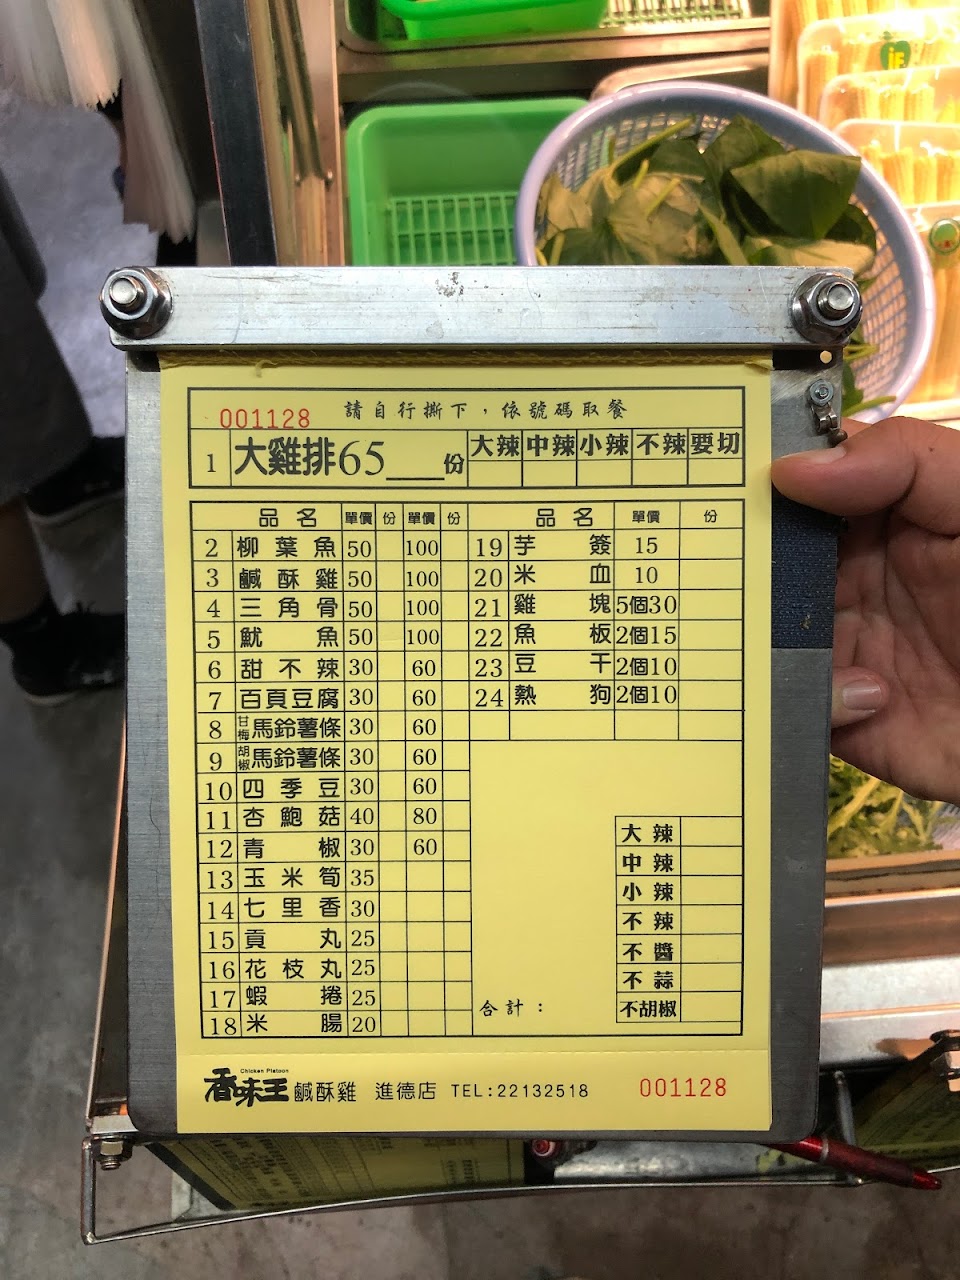 001128 請自行撕下，依號碼取餐
1 大雞排65___份 大辣 中辣 小辣 不辣 要切
品名 單價 份 單價 份 品名 單價 份
2 柳葉魚 50 100 19 芋簽 15
3 鹹酥雞 50 100 20 米血 10
4 三角骨 50 100 21 雞塊 5個30
5 魷魚 50 100 22 魚板 2個15
6 甜不辣 30 60 23 豆干 2個10
7 百頁豆腐 30 60 24 熱狗 2個10
8 甘梅馬鈴薯條 30 60
9 胡椒馬鈴薯條 30 60
10 四季豆 30 60
11 杏鮑菇 40 80 大辣
12 青椒 30 60 中辣
13 玉米筍 35 小辣
14 七里香 30 不辣
15 貢丸 25 不醬
16 花枝丸 25 不蒜
17 蝦捲 25 合計： 不胡椒
18 米腸 20
Chicken Platoon
香味王 鹹酥雞 進德店 TEL:22132518 001128